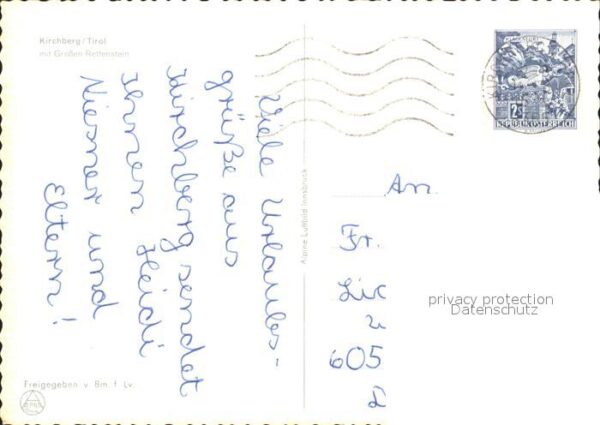 Kirchberg/Tirol
mit Großen Rettenstein
Viele Urlaubs-
grüße aus
Kirchberg sendet
Ihnen Heidi
Niesner und
Eltern!
Alpine Luftbild Innsbruck
REPUBLIK ÖSTERREICH
An
Fr.
605
privacy protection
Datenschutz
Freigegeben v. Bm. f. Lv.